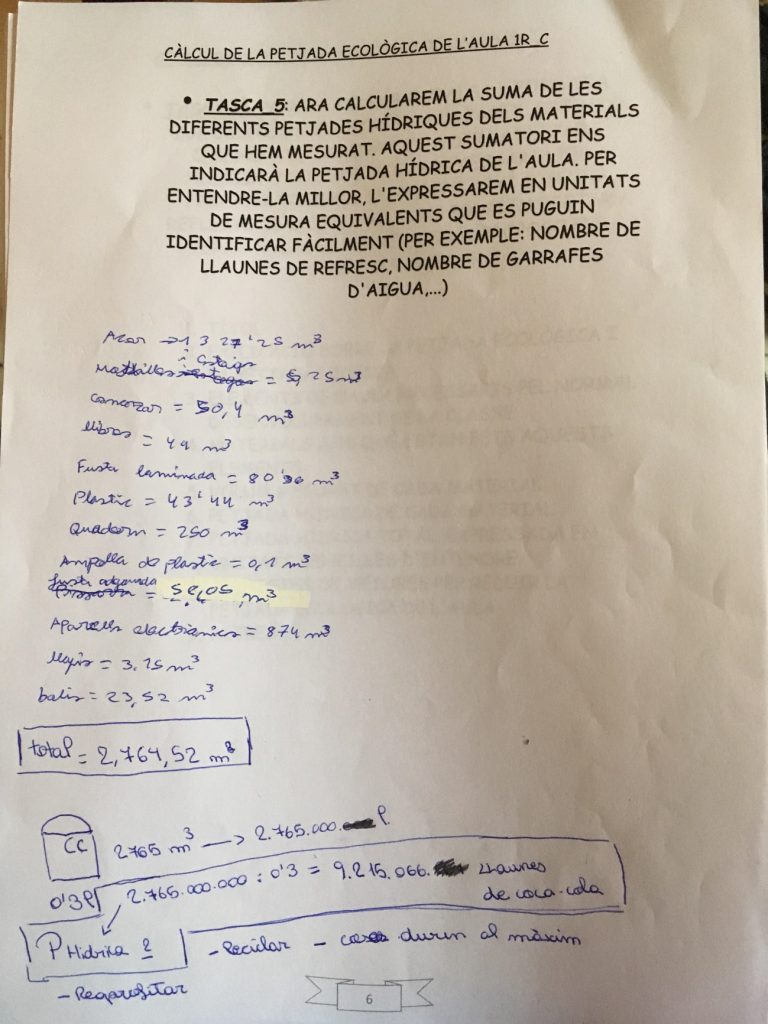 CÀLCUL DE LA PETJADA ECOLÒGICA DE L'AULA 1R_C
• TASCA_5: ARA CALCULAREM LA SUMA DE LES
DIFERENTS PETJADES HÍDRIQUES DELS MATERIALS
QUE HEM MESURAT. AQUEST SUMATORI ENS
INDICARÀ LA PETJADA HÍDRICA DE L'AULA. PER
ENTENDRE-LA MILLOR, L'EXPRESSAREM EN UNITATS
DE MESURA EQUIVALENTS QUE ES PUGUIN
IDENTIFICAR FÀCILMENT (PER EXEMPLE: NOMBRE DE
LLAUNES DE REFRESC, NOMBRE DE GARRAFES
D'AIGUA,...)
Acer → 1327'25 m³
= 5,25 m³
= 50,4 m³
llibres = 49 m³
Fusta laminada = m³
Plastic = 43'44 m³
Quadern = 250 m³
Ampolla de plastic = 0,1 m³
fusta m³
Aparells electrònics = 874 m³
llapis = 3,25 m³
bolis = 23,52 m³
total = 2,764,52 m³
CC 2765 m³ → 2.765.000. l.
0'3 l 2.765.000.000 : 0'3 = 9.215.066. Llaunes
de coca-cola
P Hidrica - Reciclar - coses durin al màxim
- Reaprofitar
6